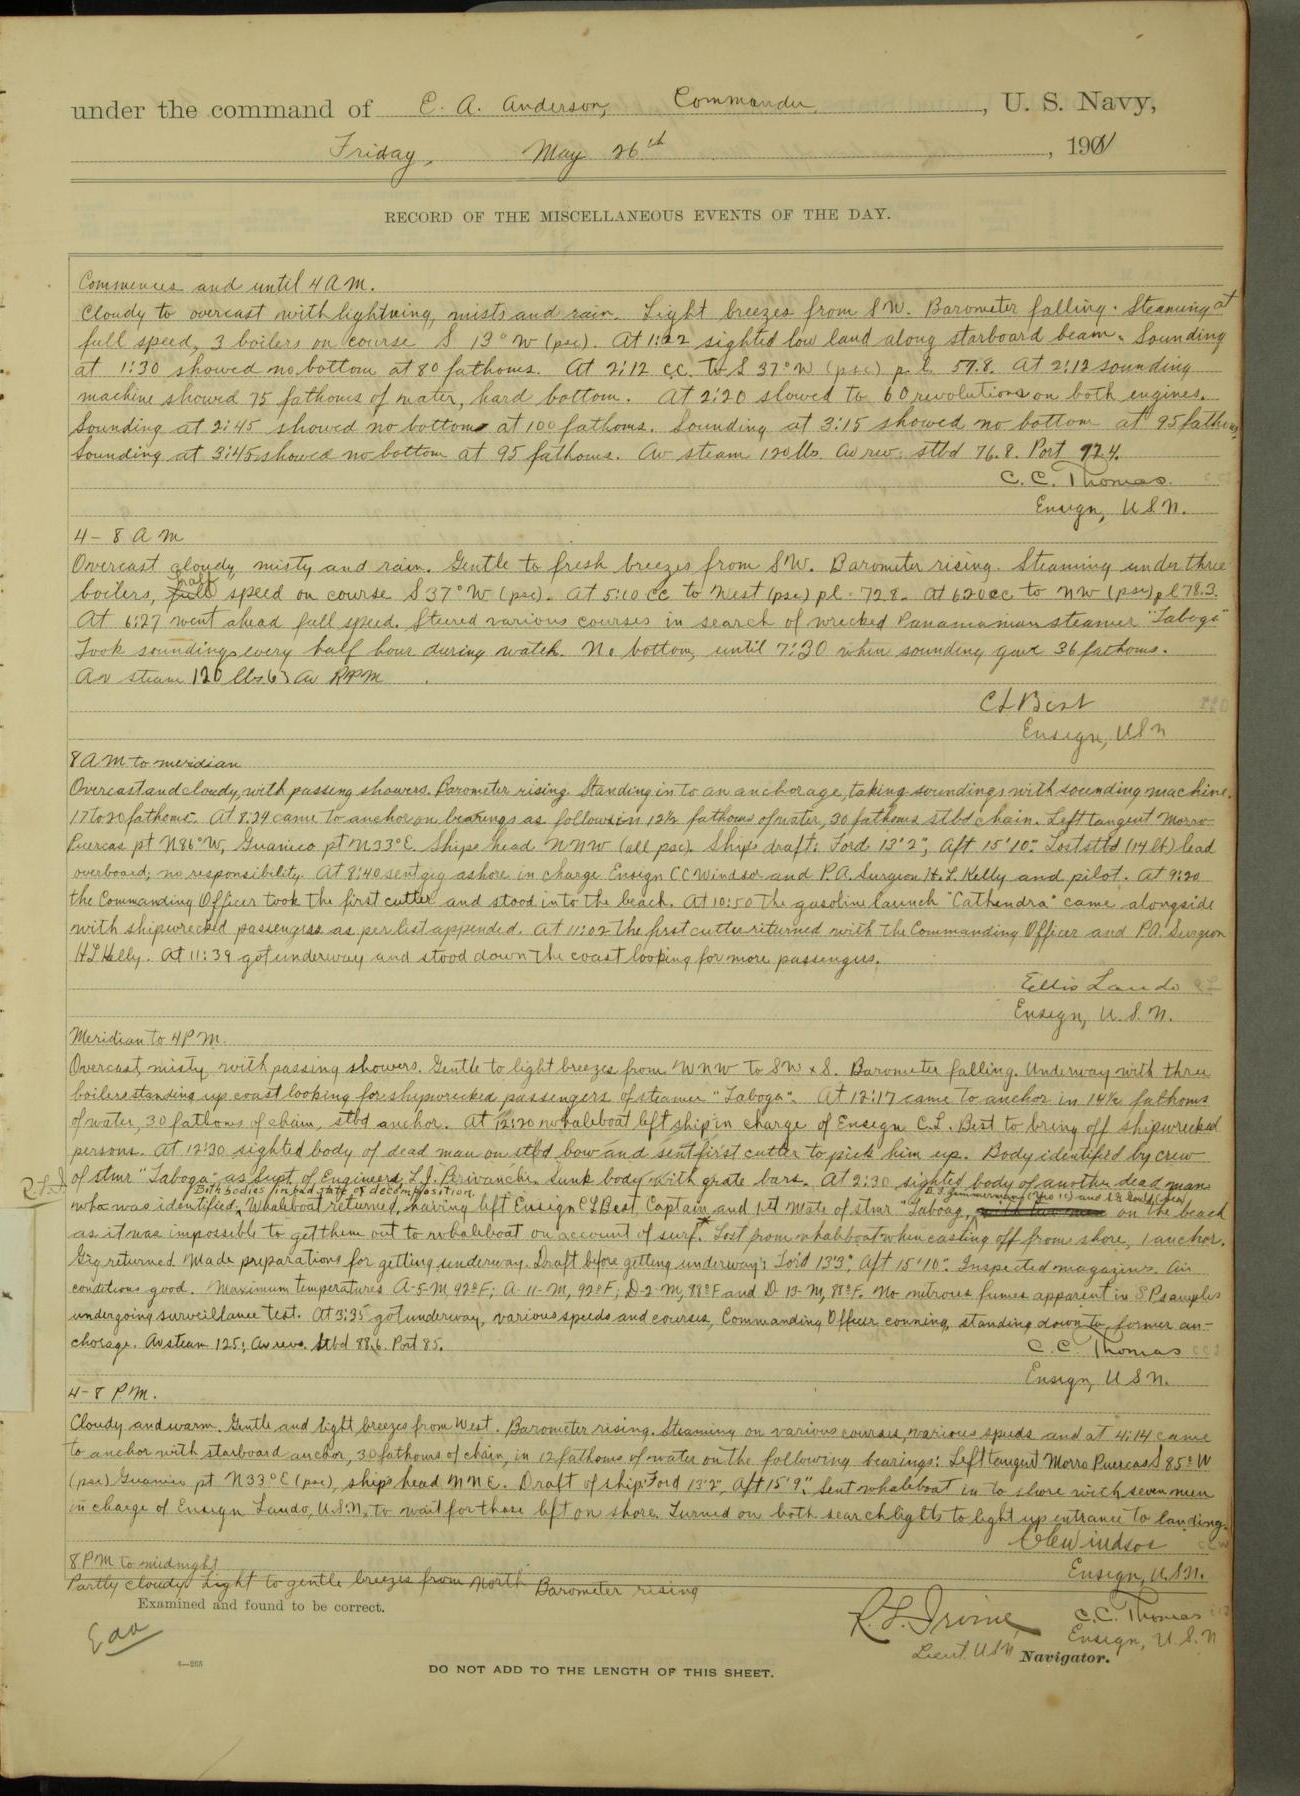 under the command of E. A. Anderson, Commander, U. S. Navy,
Friday, May 26th, 1901
RECORD OF THE MISCELLANEOUS EVENTS OF THE DAY.
Commences and until 4 A M.
Cloudy to overcast with lightning, mists and rain. Light breezes from SW. Barometer falling. Steaming at
full speed, 3 boilers on course S 13° W (psc). At 1:22 sighted low land along starboard beam. Sounding
at 1:30 showed no bottom at 80 fathoms. At 2:12 c.c. to S 37° W (psc) p. l. 57.8. At 2:12 sounding
machine showed 75 fathoms of water, hard bottom. At 2:20 slowed to 60 revolutions on both engines.
Sounding at 2:45 showed no bottom at 100 fathoms. Sounding at 3:15 showed no bottom at 95 fathoms
Sounding at 3:45 showed no bottom at 95 fathoms. Av steam 120 lbs Av rev: stbd 76.8. Port 72.4.
C. C. Thomas.
Ensign, U S N.
4 - 8 A M
Overcast cloudy, misty and rain. Gentle to fresh breezes from SW. Barometer rising. Steaming under three
boilers, half speed on course S 37° W (psc). At 5:10 cc to West (psc) pl - 72.8. At 6 20 cc to NW (psc) pl 78.3.
At 6:27 went ahead full speed. Steered various courses in search of wrecked Panamanian steamer "Taboga"
Took soundings every half hour during watch. No bottom, until 7:30 when sounding gave 36 fathoms.
Av steam 120 lbs 63 av RPM
C L Best
Ensign, U S N
8 A M to meridian
Overcast and cloudy, with passing showers. Barometer rising. Standing in to an anchorage, taking soundings with sounding machine.
17 to 20 fathoms. At 8.24 came to anchor on bearings as follows in 12½ fathoms of water, 30 fathoms stbd chain. Left tangent Morro
Puercas pt N86°W, Guanico pt N33°E. Ships head NNW (all psc). Ship's draft: Ford 13' 2"; Aft 15' 10". Lost stbd (14 lb) lead
overboard; no responsibility. At 8:40 sent gig ashore in charge Ensign C C Windsor and P. A. Surgeon H. L. Kelly and pilot. At 9:20
the Commanding Officer took the first cutter and stood in to the beach. At 10:50 the gasoline launch "Cathendra" came alongside
with shipwrecked passengers as per list appended. At 11:02 the first cutter returned with the Commanding Officer and P.A. Surgeon
H L Kelly. At 11:39 got underway and stood down the coast looking for more passengers.
Ellis Lando
Ensign, U. S. N.
Meridian to 4 P M.
Overcast, misty, with passing showers. Gentle to light breezes from WNW to SW x S. Barometer falling. Underway with three
boilers standing up coast looking for shipwrecked passengers of steamer "Taboga". At 12:17 came to anchor in 14½ fathoms
of water, 30 fathoms of chain, stbd anchor. At 12:20 whaleboat left ship in charge of Ensign C. L. Best to bring off shipwrecked
persons. At 12:30 sighted body of dead man on stbd bow and sent first cutter to pick him up. Body identified by crew
of stmr "Taboga" as Supt. of Engineers, L. J. Sunk body with grate bars. At 2:30 sighted body of another dead man
Both bodies in bad state of decomposition.
who was identified. Whaleboat returned, having left Ensign C L Best, Captain and 1st Mate of stmr "Taboga, on the beach
as it was impossible to get them out to whaleboat on account of surf. Lost from whaleboat when casting off from shore, 1 anchor.
Gig returned. Made preparations for getting underway. Draft before getting underway: For'd 13'3"; Aft 15'10". Inspected magazines. Air
conditions good. Maximum temperatures A-5-M 92°F; A-11-M, 92°F; D-2-M, 88°F and D-13-M, 88°F. No nitrous fumes apparent in S P samples
undergoing surveillance test. At 3:35 got underway, various speeds and courses, Commanding Officer conning, standing down to former an-
chorage. Av steam 125; Av revs. Stbd 88.6. Port 85.
C. C. Thomas
Ensign, U S N.
4 - 8 P. M.
Cloudy and warm. Gentle and light breezes from West. Barometer rising. Steaming on various courses, various speeds and at 4:14 came
to anchor with starboard anchor, 30 fathoms of chain, in 12 fathoms of water on the following bearings: Left tangent Morro Puercas S 85° W
(psc) Guanico pt N33°E (psc), ship's head NNE. Draft of ship: Ford 13' 2", Aft 15' 9". Sent whaleboat in to shore with seven men
in charge of Ensign Lando, U.S.N., to wait for those left on shore. Turned on both searchlights to light up entrance to landing.
C C Windsor
Ensign, U.S.N.
8 P M to midnight
Partly cloudy Light to gentle breezes from North Barometer rising
Examined and found to be correct.
Eaa
R. L. Irvine,
Lieut. U S N
C. C. Thomas
Ensign, U. S. N
Navigator.
DO NOT ADD TO THE LENGTH OF THIS SHEET.